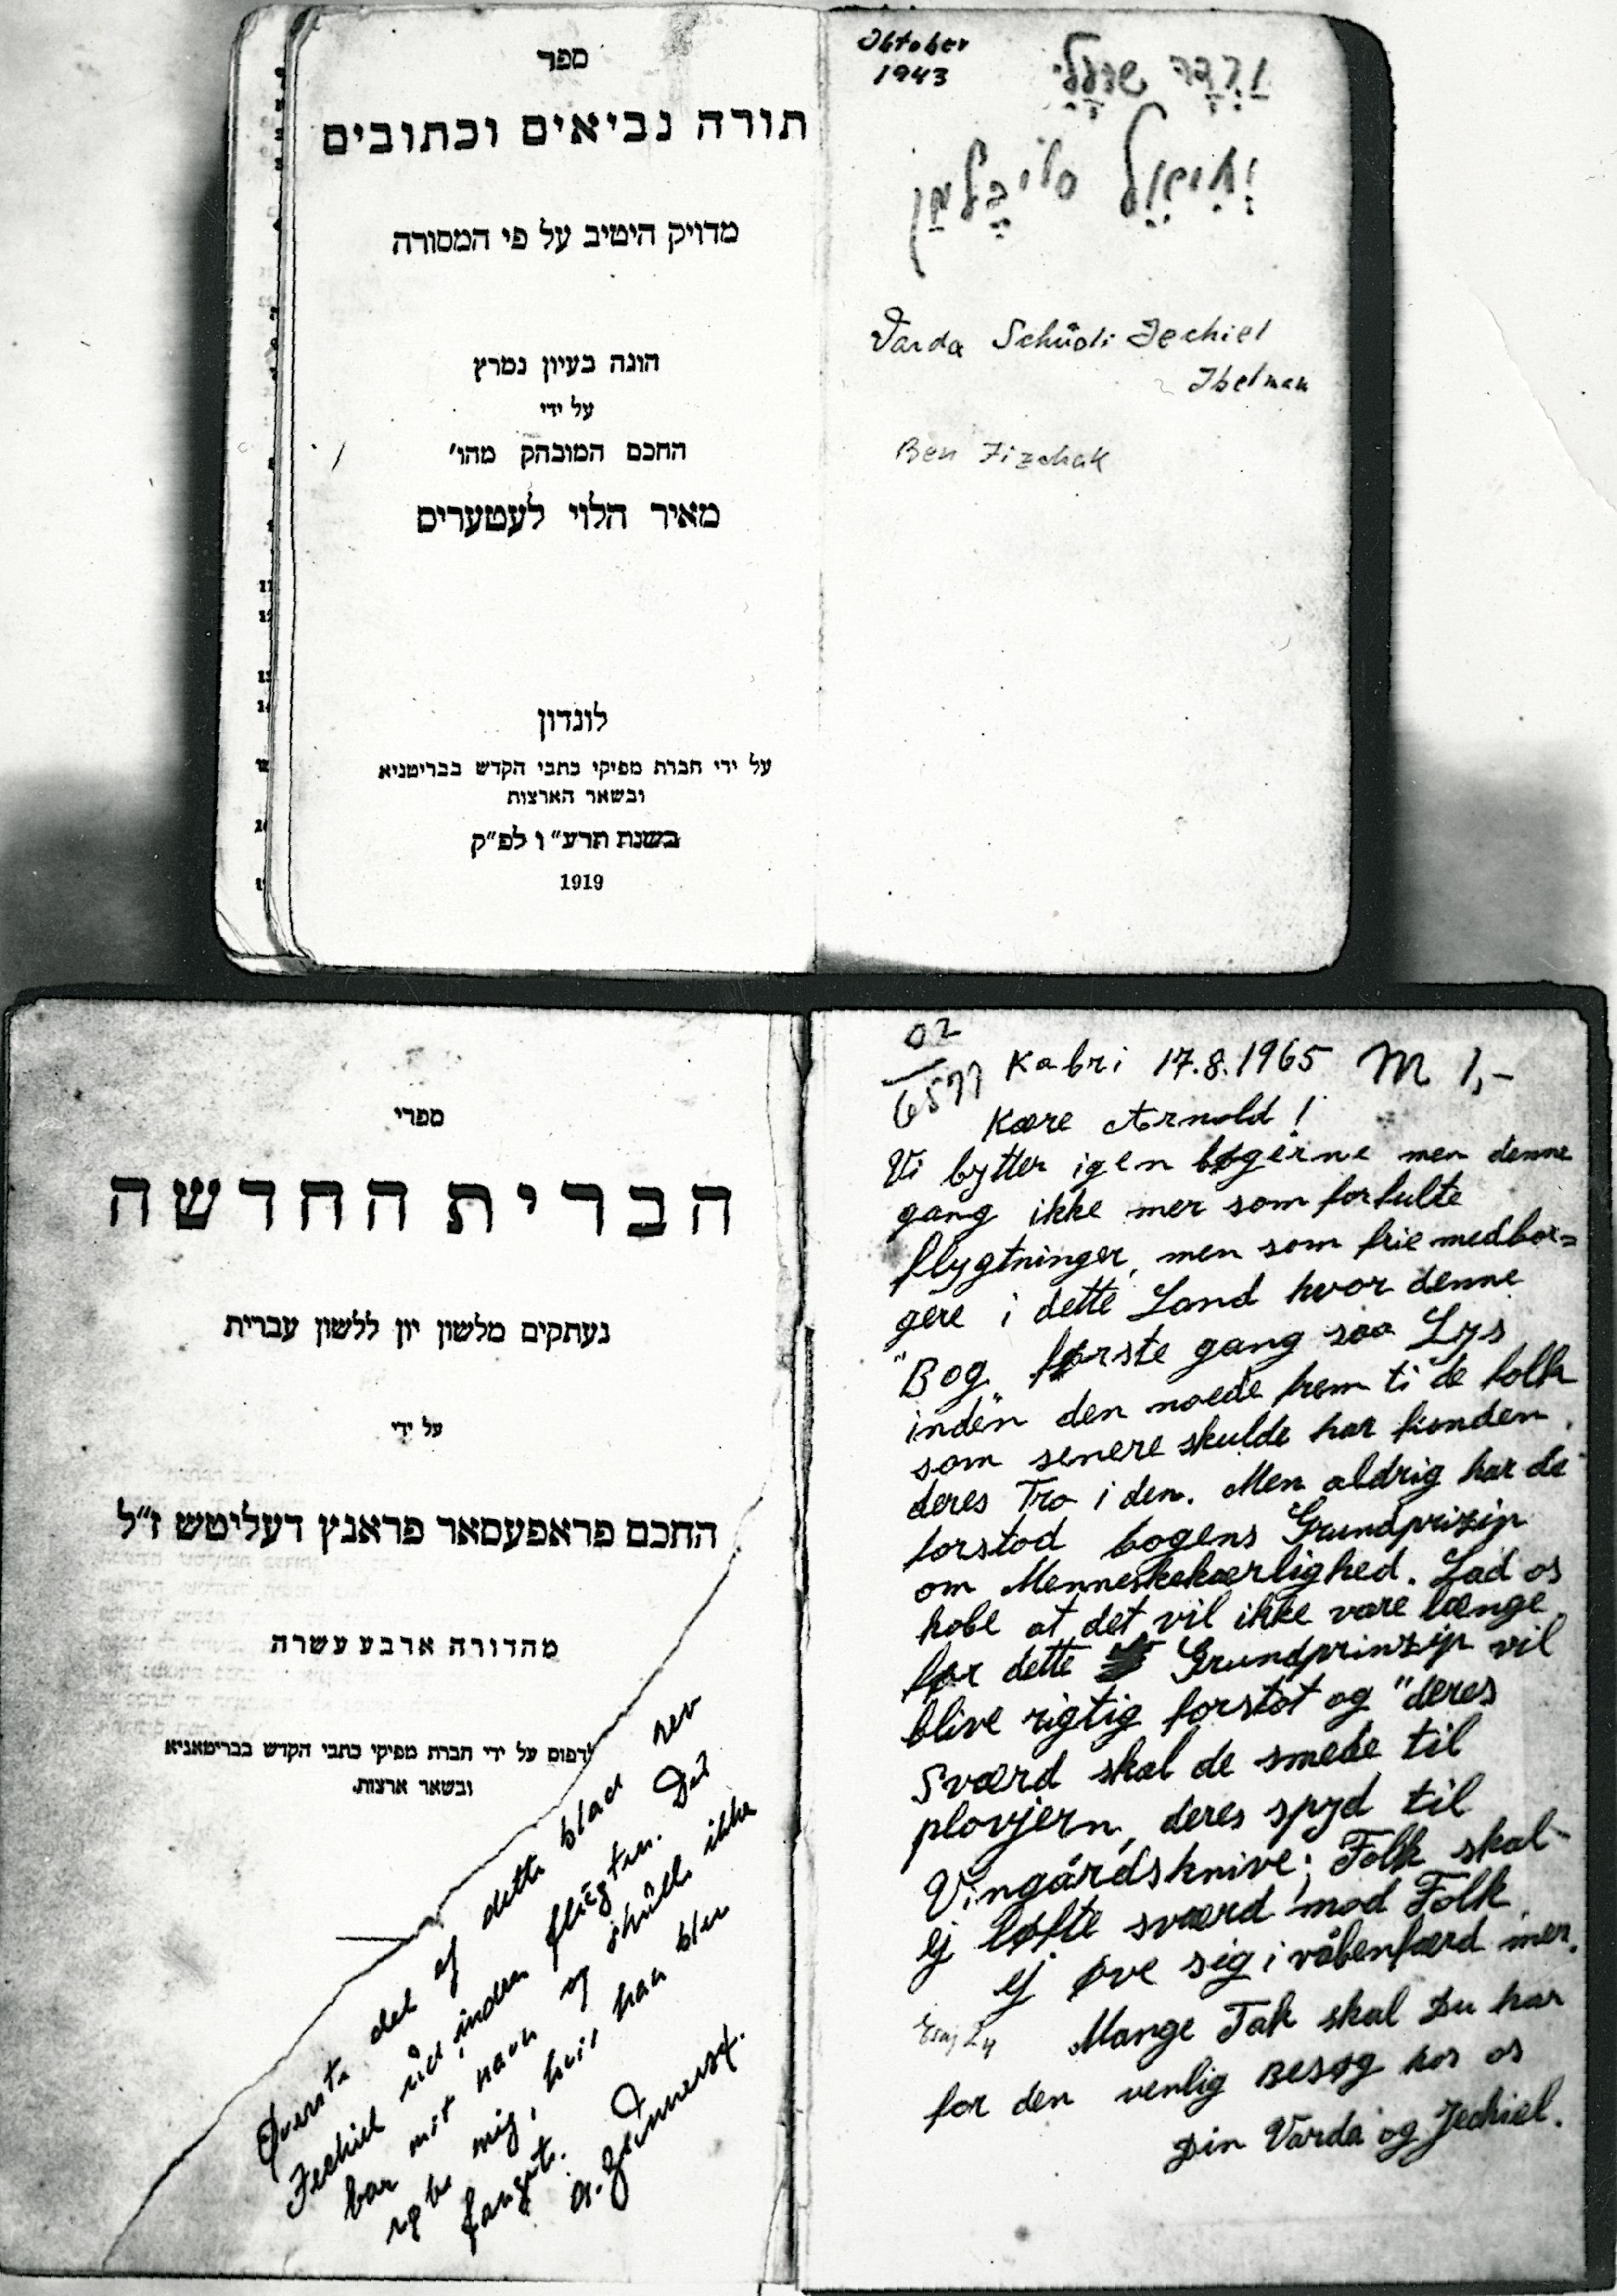 ספר
תורה נביאים וכתובים
מדויק היטיב על פי המסורה
הוגה בעיון נמרץ
על ידי
החכם המובהק מהו׳
מאיר הלוי לעטעריס
לונדון
על ידי חברת מפיקי כתבי הקדש בבריטניא
ובשאר הארצות
בשנת תרע״ו לפ״ק
1919
Oktober
1943
Varda Schüoli Jechiel
Ibelman
Ben Jizchak
ספרי
הברית החדשה
נעתקים מלשון יון ללשון עברית
על ידי
החכם פראפעסאר פראנץ דעליטש ז״ל
מהדורה ארבע עשרה
נדפום על ידי חברת מפיקי כתבי הקדש בבריטאניא
ובשאר ארצות.
Øverste del af dette blad rev
Jechiel ud inden flugten. Det
bar mit navn og skulle ikke
røbe mig, hvis han blev
fanget.
02
6577
Kabri 17.8.1965 M 1,-
Kære Arnold!
Vi bytter igen bøgerne men denne
gang ikke mer som forfulte
flygtninger, men som frie medbor=
gere i dette Land hvor denne
"Bog første gang saa Lys
inden" den naaede frem til de folk
som senere skulde har funden
deres Tro i den. Men aldrig har de
forstod bogens Grundprizip
om Menneskekærlighed. Lad os
hobe at det vil ikke vare længe
før dette Grundprinzip vil
blive rigtig forstot og "deres
Sværd skal de smede til
plovjern, deres spyd til
Vingårdsknive; Folk skal
ej løfte sværd mod Folk
ej øve sig i våbenfærd mer.
Esaj 2,4 Mange Tak skal Du har
for den venlig Besøg hos os
Din Varda og Jechiel.